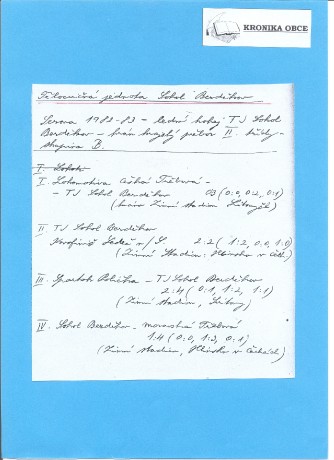 KRONIKA OBCE
Tělocvičná jednota Sokol Berdikov
Sezona 1982-83 – lední hokej TJ Sokol
Berdikov – hrán krajský přebor II. třídy
skupina B.
I. Sokol
I Lokomotiva Česká Třebová –
– TJ Sokol Berdikov 0:3 (0:0, 0:2, 0:1)
(hráno Zimní stadion Litomyšl)
II TJ Sokol Berdikov
Sadek n/S 2:2 (1:2, 0:0, 1:0)
(Zimní stadion: Hlinsko v Čech)
III. Spartak Polička – TJ Sokol Berdikov
2:4 (0:1, 1:2, 1:1)
(Zimní stadion, )
IV. Sokol Berdikov – Moravská Třebová
1:4 (0:0, 1:3, 0:1)
(Zimní stadion, Hlinsko v Čechách)